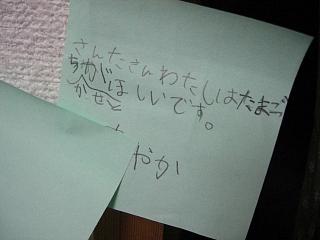 さんたさんわたしはたまごっ
ちがほしいです。
かせと
やか